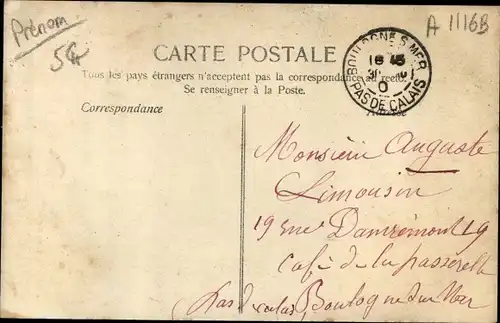 Prénom
5€
A 1116B
CARTE POSTALE
Tous les pays étrangers n'acceptent pas la correspondance au recto
Se renseigner à la Poste.
Correspondance
Adresse
BOULOGNE S. MER
16 45
PAS DE CALAIS
Monsieur Auguste
Limousin
19 rue Damrémont 19
café de la passerelle
Pas de calais, Boulogne sur Mer